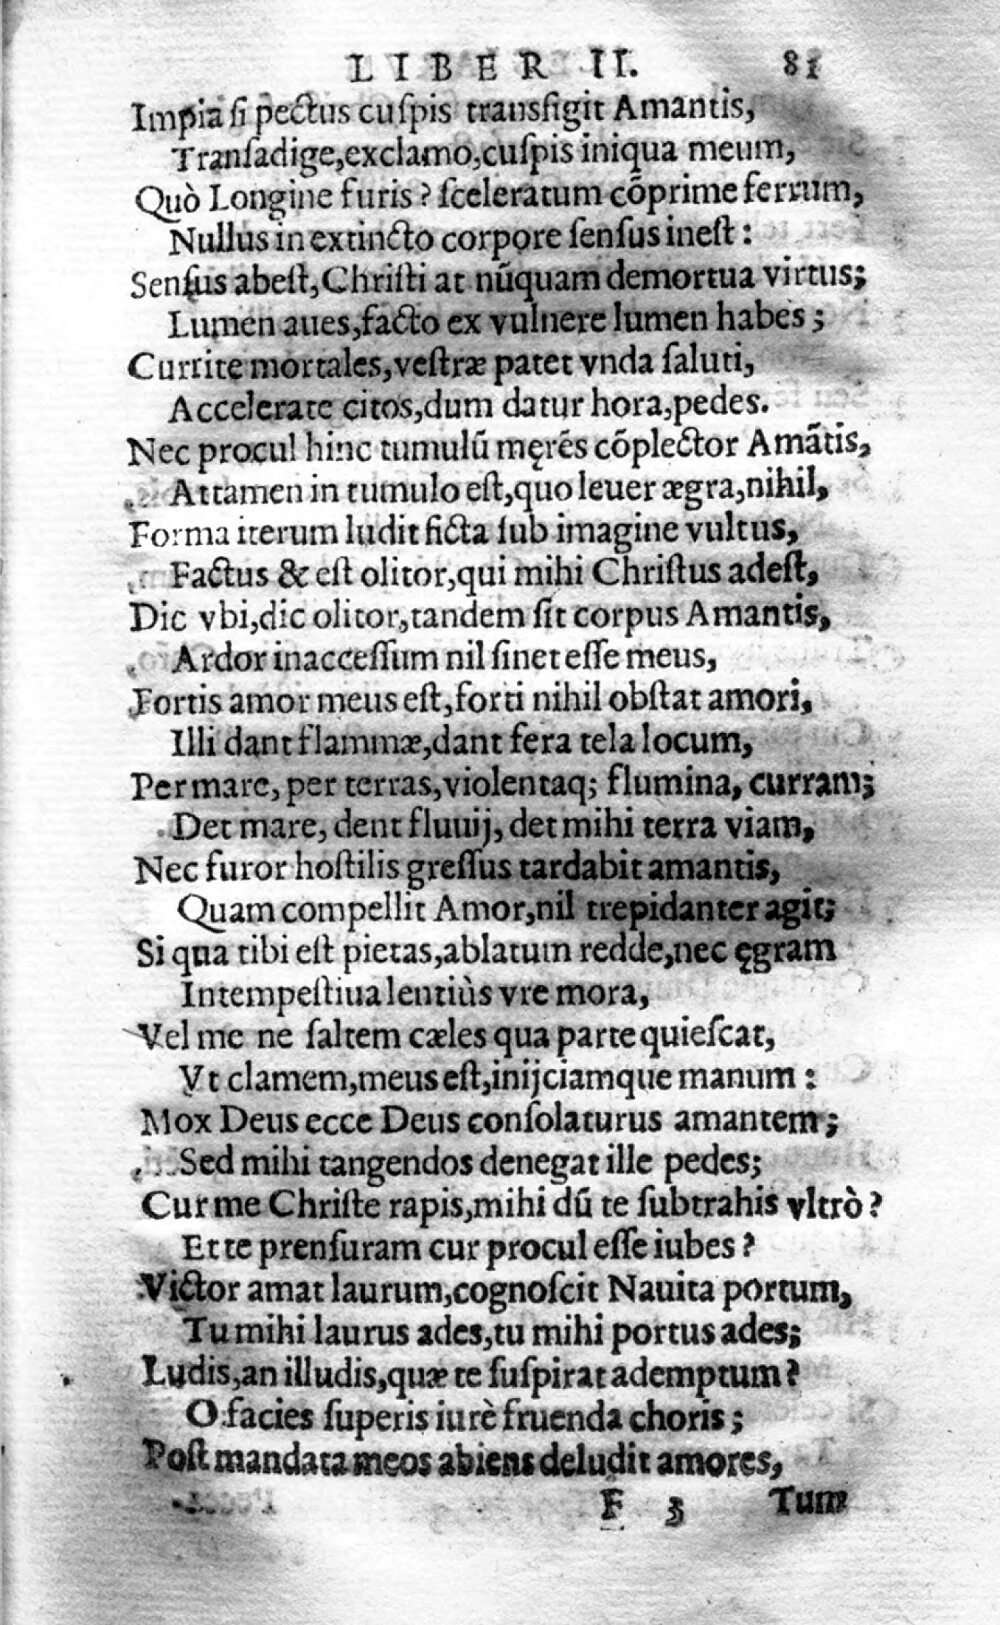 LIBER II. 81
Impia si pectus cuspis transfigit Amantis,
Transadige,exclamo,cuspis iniqua meum,
Quò Longine furis? sceleratum cõprime ferrum,
Nullus in extincto corpore sensus inest:
Sensus abest,Christi at nũquam demortua virtus;
Lumen aues,facto ex vulnere lumen habes;
Currite mortales,vestræ patet vnda saluti,
Accelerate citos,dum datur hora,pedes.
Nec procul hinc tumulũ męrẽs cõplector Amãtis,
Attamen in tumulo est,quo leuer ægra,nihil,
Forma iterum ludit ficta sub imagine vultus,
Factus & est olitor,qui mihi Christus adest,
Dic vbi,dic olitor,tandem sit corpus Amantis,
Ardor inaccessum nil sinet esse meus,
Fortis amor meus est,forti nihil obstat amori,
Illi dant flammæ,dant fera tela locum,
Per mare, per terras,violentaq; flumina, curram;
Det mare, dent fluuij, det mihi terra viam,
Nec furor hostilis gressus tardabit amantis,
Quam compellit Amor,nil trepidanter agit;
Si qua tibi est pietas,ablatum redde,nec ęgram
Intempestiua lentiùs vre mora,
Vel me ne saltem cæles qua parte quiescat,
Vt clamem,meus est,inijciamque manum:
Mox Deus ecce Deus consolaturus amantem;
Sed mihi tangendos denegat ille pedes;
Cur me Christe rapis,mihi dũ te subtrahis vltrò?
Et te prensuram cur procul esse iubes?
Victor amat laurum,cognoscit Nauita portum,
Tu mihi laurus ades,tu mihi portus ades;
Ludis,an illudis,quæ te suspirat ademptum?
O facies superis iurè fruenda choris;
Post mandata meos abiens deludit amores,
F 3 Tum